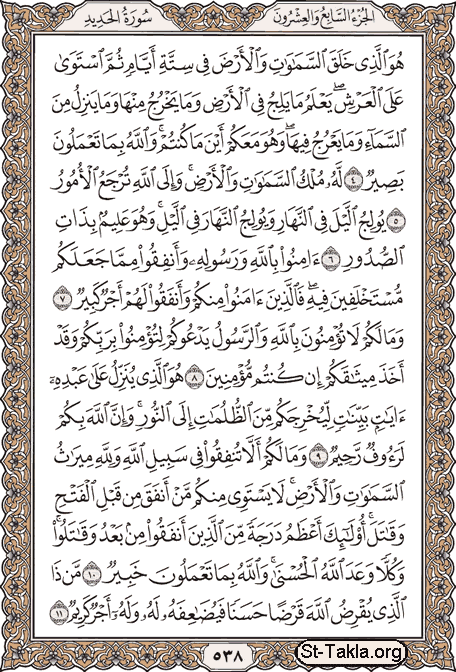 الجزء السابع والعشرون
سورة الحديد
هُوَ ٱلَّذِى خَلَقَ ٱلسَّمَٰوَٰتِ وَٱلْأَرْضَ فِى سِتَّةِ أَيَّامٍ ثُمَّ ٱسْتَوَىٰ
عَلَى ٱلْعَرْشِ ۚ يَعْلَمُ مَا يَلِجُ فِى ٱلْأَرْضِ وَمَا يَخْرُجُ مِنْهَا وَمَا يَنزِلُ مِنَ
ٱلسَّمَآءِ وَمَا يَعْرُجُ فِيهَا ۖ وَهُوَ مَعَكُمْ أَيْنَ مَا كُنتُمْ ۚ وَٱللَّهُ بِمَا تَعْمَلُونَ
بَصِيرٌ ٤ لَّهُۥ مُلْكُ ٱلسَّمَٰوَٰتِ وَٱلْأَرْضِ ۚ وَإِلَى ٱللَّهِ تُرْجَعُ ٱلْأُمُورُ
٥ يُولِجُ ٱلَّيْلَ فِى ٱلنَّهَارِ وَيُولِجُ ٱلنَّهَارَ فِى ٱلَّيْلِ ۚ وَهُوَ عَلِيمٌۢ بِذَاتِ
ٱلصُّدُورِ ٦ ءَامِنُوا۟ بِٱللَّهِ وَرَسُولِهِۦ وَأَنفِقُوا۟ مِمَّا جَعَلَكُم
مُّسْتَخْلَفِينَ فِيهِ ۖ فَٱلَّذِينَ ءَامَنُوا۟ مِنكُمْ وَأَنفَقُوا۟ لَهُمْ أَجْرٌ كَبِيرٌ ٧
وَمَا لَكُمْ لَا تُؤْمِنُونَ بِٱللَّهِ ۙ وَٱلرَّسُولُ يَدْعُوكُمْ لِتُؤْمِنُوا۟ بِرَبِّكُمْ وَقَدْ
أَخَذَ مِيثَٰقَكُمْ إِن كُنتُم مُّؤْمِنِينَ ٨ هُوَ ٱلَّذِى يُنَزِّلُ عَلَىٰ عَبْدِهِۦٓ
ءَايَٰتٍۭ بَيِّنَٰتٍ لِّيُخْرِجَكُم مِّنَ ٱلظُّلُمَٰتِ إِلَى ٱلنُّورِ ۚ وَإِنَّ ٱللَّهَ بِكُمْ
لَرَءُوفٌ رَّحِيمٌ ٩ وَمَا لَكُمْ أَلَّا تُنفِقُوا۟ فِى سَبِيلِ ٱللَّهِ وَلِلَّهِ مِيرَٰثُ
ٱلسَّمَٰوَٰتِ وَٱلْأَرْضِ ۚ لَا يَسْتَوِى مِنكُم مَّنْ أَنفَقَ مِن قَبْلِ ٱلْفَتْحِ
وَقَٰتَلَ ۚ أُو۟لَٰٓئِكَ أَعْظَمُ دَرَجَةً مِّنَ ٱلَّذِينَ أَنفَقُوا۟ مِنۢ بَعْدُ وَقَٰتَلُوا۟ ۚ
وَكُلًّا وَعَدَ ٱللَّهُ ٱلْحُسْنَىٰ ۚ وَٱللَّهُ بِمَا تَعْمَلُونَ خَبِيرٌ ١٠ مَّن ذَا
ٱلَّذِى يُقْرِضُ ٱللَّهَ قَرْضًا حَسَنًا فَيُضَٰعِفَهُۥ لَهُۥ وَلَهُۥٓ أَجْرٌ كَرِيمٌ ١١
٥٣٨
St-Takla.org